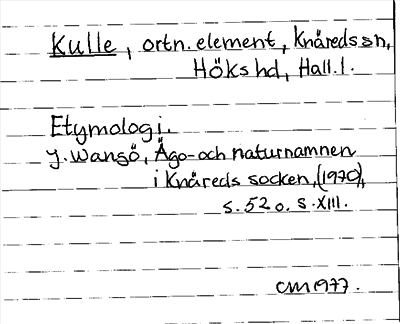 Kulle, ortn.element, Knäreds sn,
Höks hd, Hall.l.
Etymologi.
J. Wansö, Ägo- och naturnamnen
i Knäreds socken, (1970),
s. 52 o. s. XIII.
CM 1977.